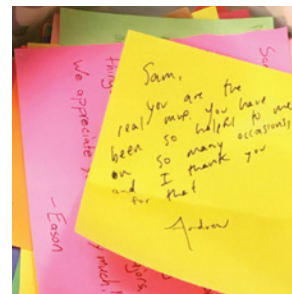 Sam,
you are the
real mvp. you have
been so helpful to me
on so many occasions,
and I thank you
for that
Andrew
So
thing
We appreciate
- Eason
much!